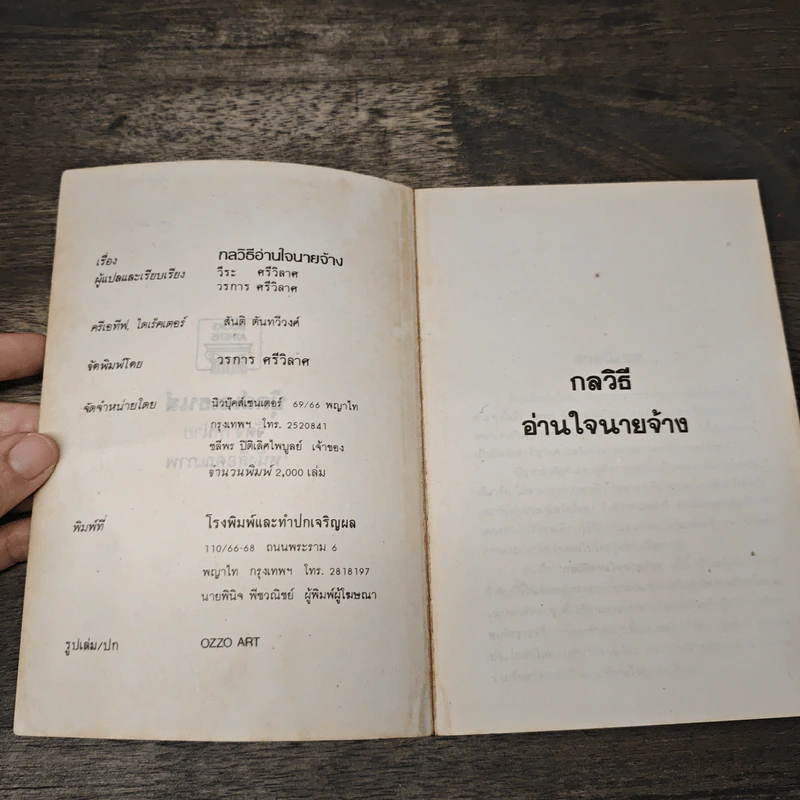 เรื่อง กลวิธีอ่านใจนายจ้าง
ผู้แปลและเรียบเรียง วีระ ศรีวิลาศ
วรการ ศรีวิลาศ
ครีเอทีฟ. ไดเร็คเตอร์ สันติ ตันทวีวงศ์
จัดพิมพ์โดย วรการ ศรีวิลาศ
จัดจำหน่ายโดย นิวบุ๊คส์เซนเตอร์ 69/66 พญาไท
กรุงเทพฯ โทร. 2520841
ชลีพร ปิติเลิศไพบูลย์ เจ้าของ
จำนวนพิมพ์ 2,000 เล่ม
พิมพ์ที่ โรงพิมพ์และทำปกเจริญผล
110/66-68 ถนนพระราม 6
พญาไท กรุงเทพฯ โทร. 2818197
นายพินิจ พืชวณิชย์ ผู้พิมพ์ผู้โฆษณา
รูปเล่ม/ปก OZZO ART
กลวิธี
อ่านใจนายจ้าง